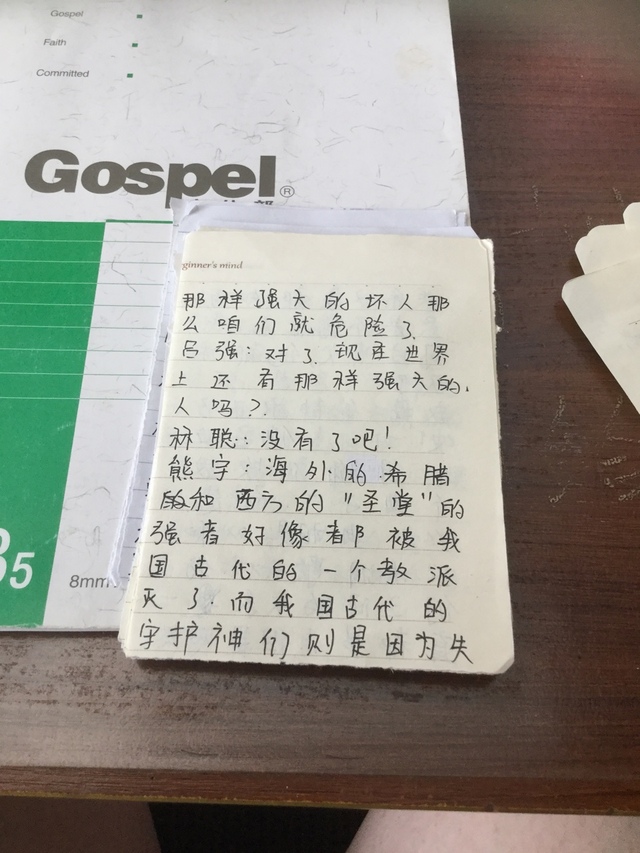 Gospel
Faith
Committed
Gospel®
ginner's mind
那样强大的坏人那
么咱们就危险了.
吕强:对了.现在世界
上还有那样强大的.
人吗?
林聪:没有了吧!
熊字:海外的希腊
的和西方的“圣堂”的
强者好像都被我
国古代的一个教派
灭了.而我国古代的
守护神们则是因为失
B5
8mm